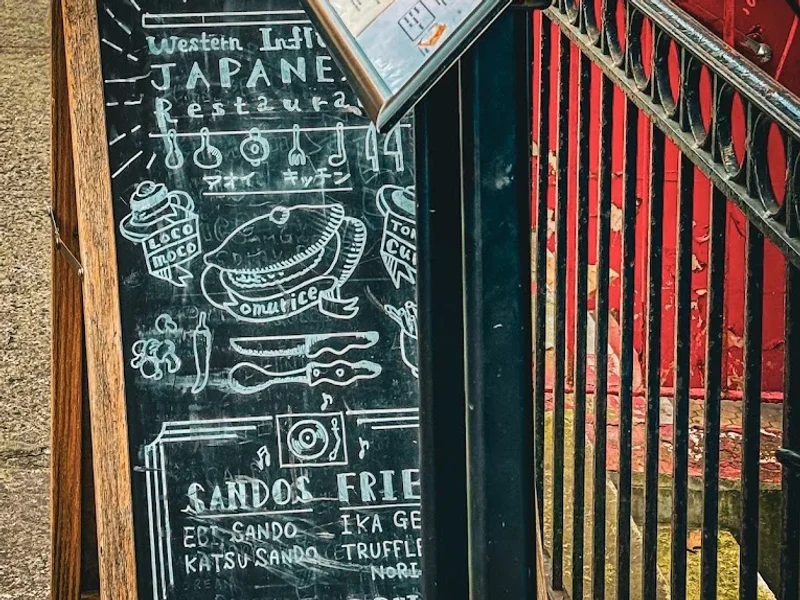 Western Infl
JAPANE
Restaura
アオイ キッチン
LOCO
MOCO
TON
CU
omurice
SANDOS
EBI SANDO
KATSU SANDO
FRIE
IKA GE
TRUFFLE
NORI